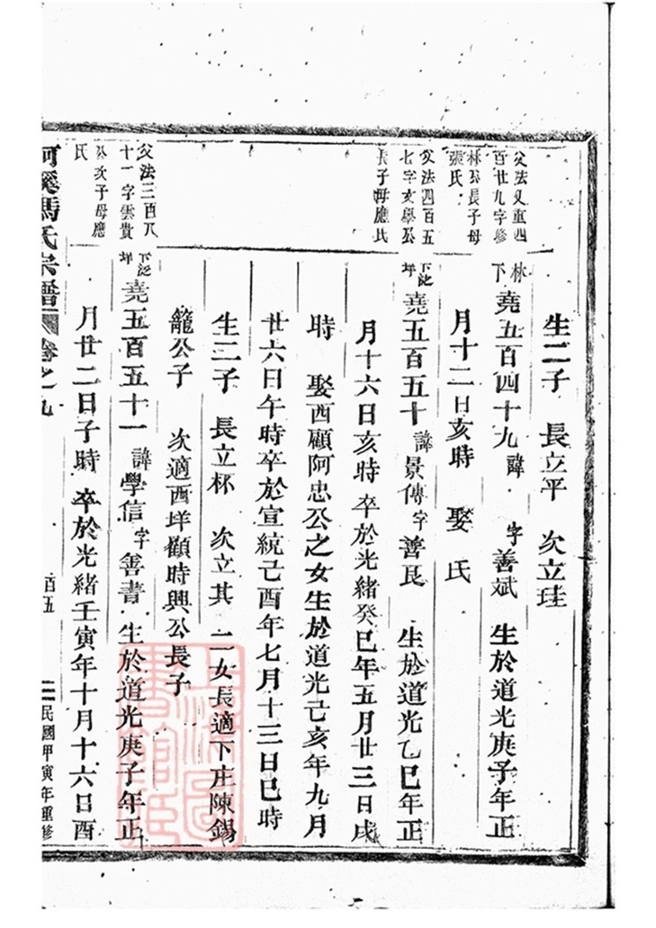 父法又重四
百廿九字修
林公長子母
張氏
父法四百五
七字文學公
長子母應氏
父法三百八
十一字雲貴
公次子母應
氏
生二子 長立平 次立珪
林下 堯五百四十九 諱 字善斌 生於道光庚子年正
月十二日亥時 娶 氏
堯五百五十 諱景傳 字善良 生於道光乙巳年正
月十六日亥時 卒於光緒癸巳年五月廿三日戌
時 娶西顧阿忠公之女生於道光己亥年九月
廿六日午時卒於宣統己酉年七月十三日巳時
生二子 長立杯 次立其 二女長適下庄陳錫
籠公子 次適西垟顧時興公長子
堯五百五十一 諱學信 字善書 生於道光庚子年正
月廿二日子時 卒於光緒壬寅年十月十六日酉
溪馮氏宗譜 卷之九 百五 民國甲寅年重修